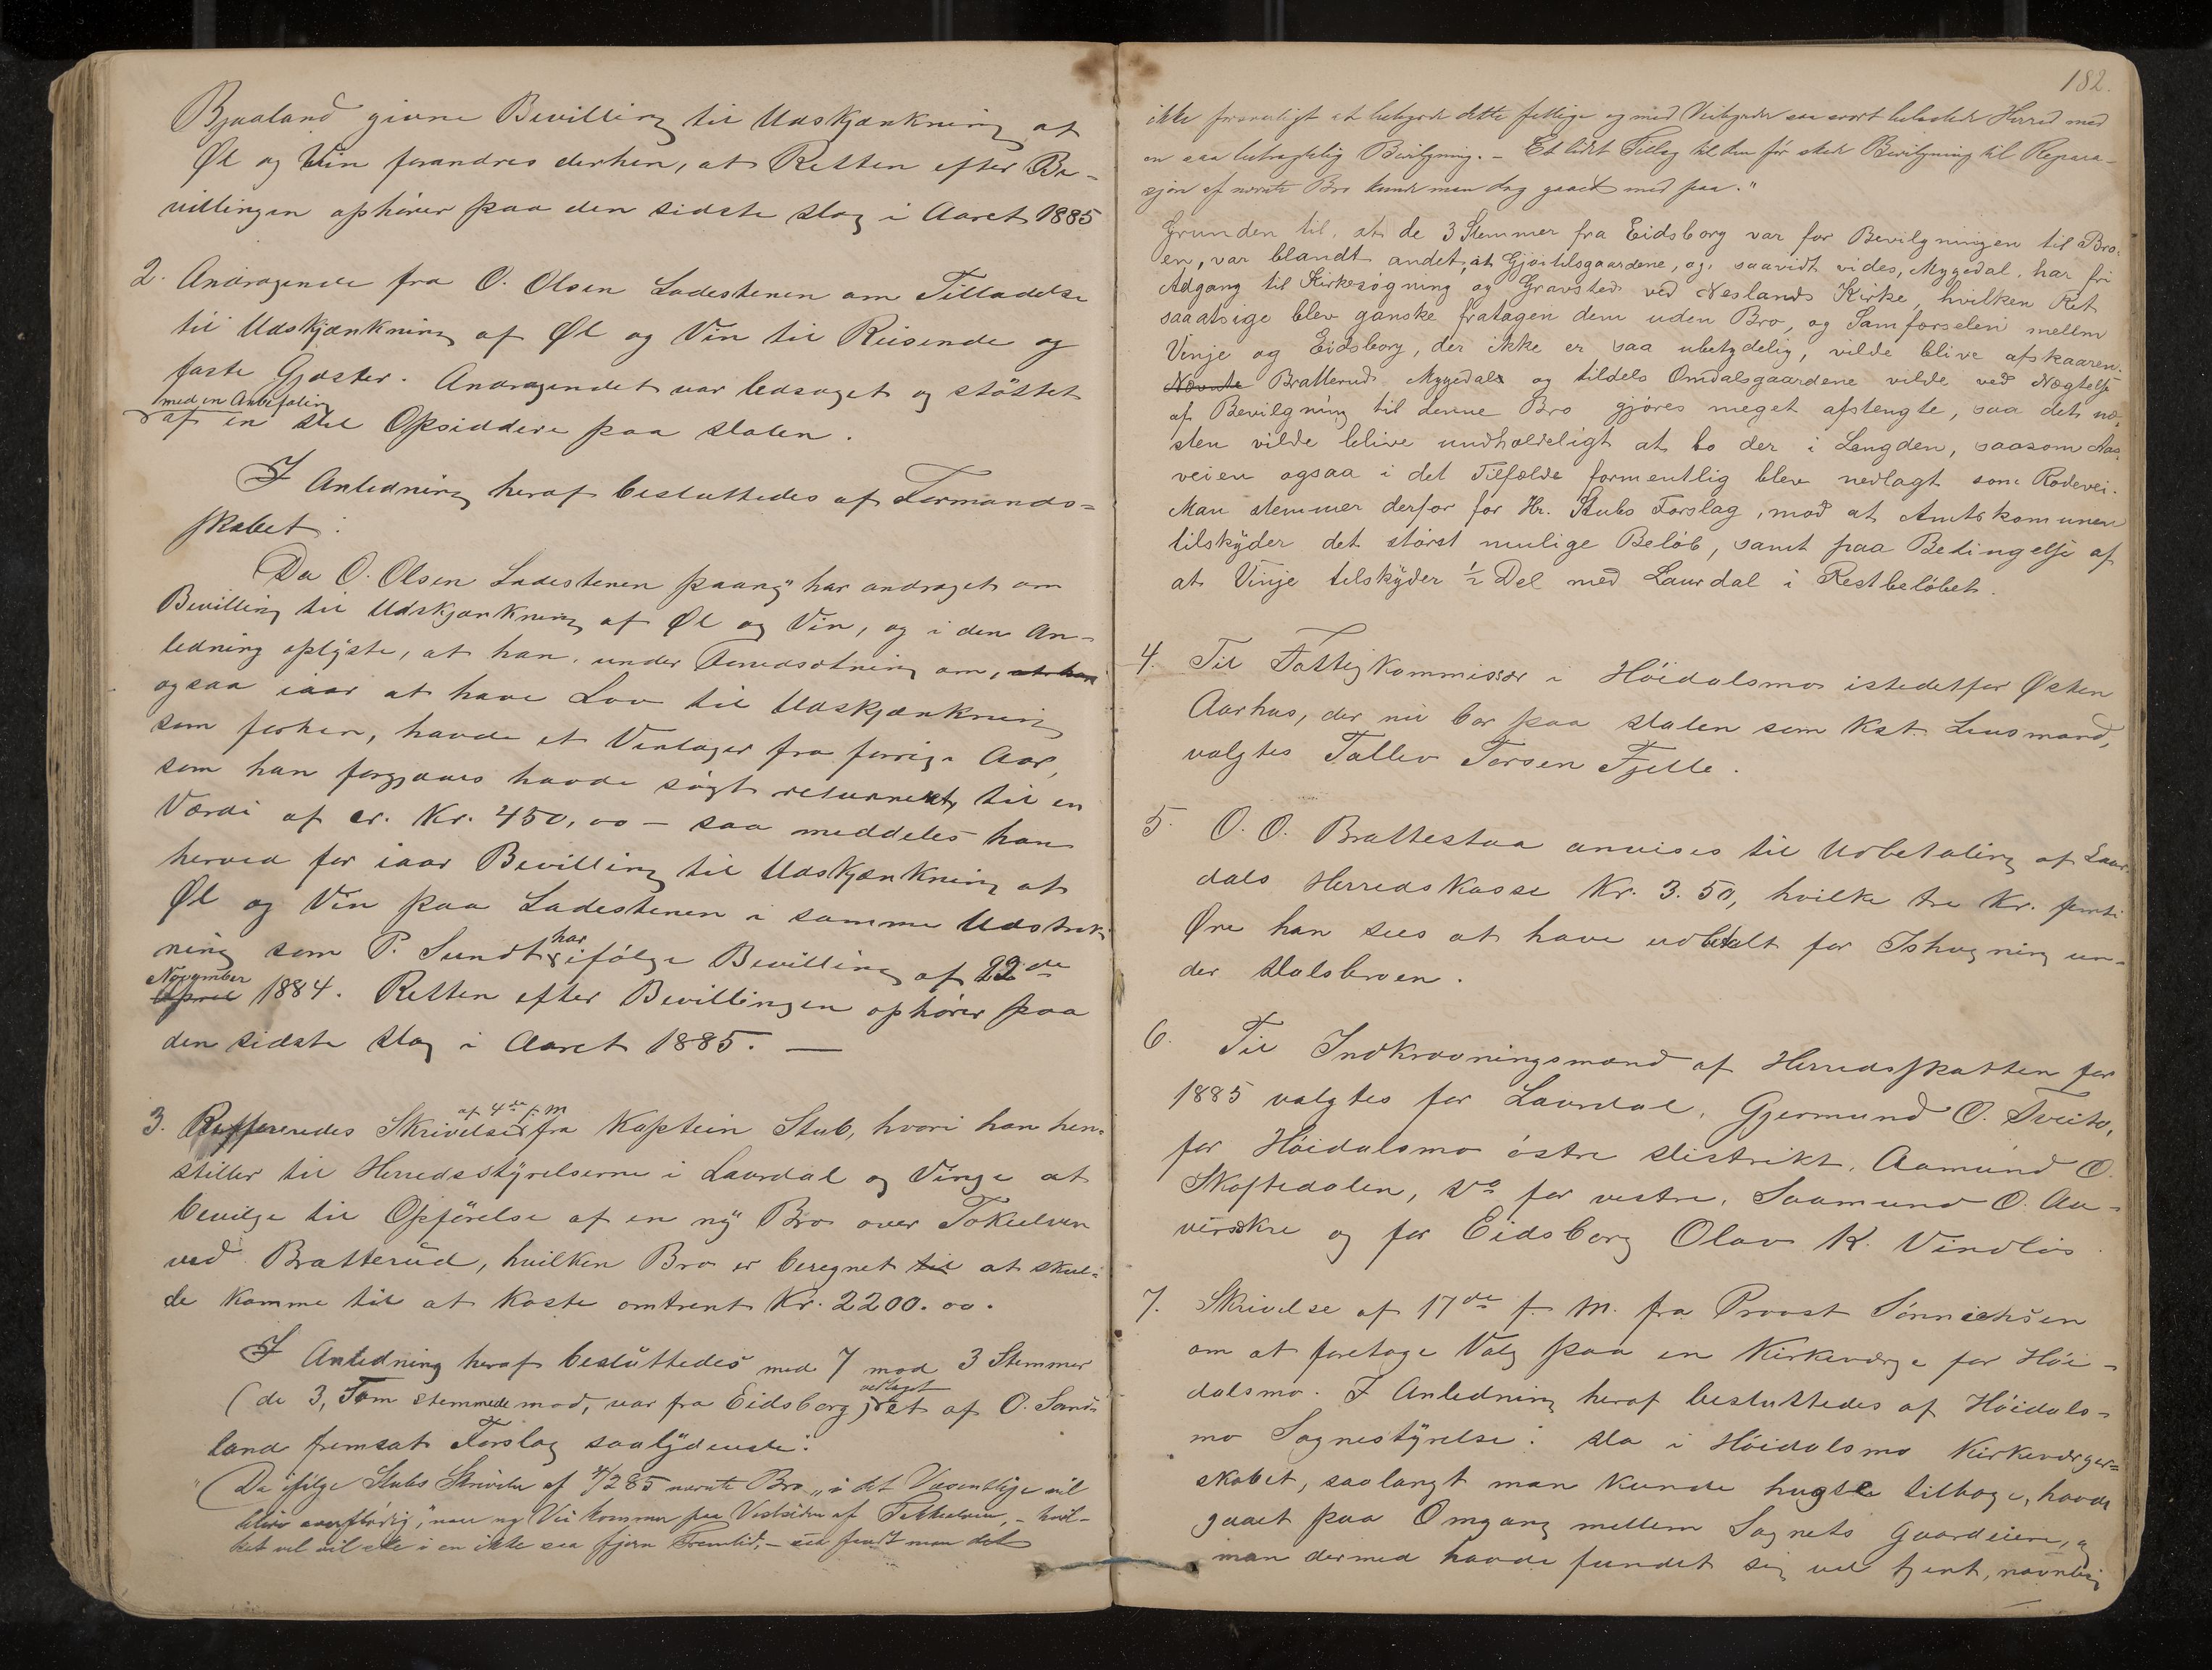 Bjaaland givne Bevilling til Udskjænkning af
Øl og Vin forandres derhen, at Retten efter Be-
villingen ophører paa den sidste Dag i Aaret 1885
2. Andragende fra O. Olsen Ladestenen om Tilladelse
til Udskjænkning af Øl og Vin til Reisende og
faste Gjæster. Andragendet var ledsaget og støttet
med en Anbefaling
af en Del Opsiddere paa Dalen.
I Anledning heraf besluttedes af Formands=
skabet:
Da O. Olsen Ladestenen paany har andraget om
Bevilling til Udskjænkning af Øl og Vin, og i den An-
ledning oplyste, at han, under Forudsætning om, at han
ogsaa iaar at have Lov til Udskjænkning
som forhen, havde et Vinlager fra forrige Aar,
som han forgjæves havde søgt returneret, til en
Værdi af cr. Kr. 450,00 – saa meddeles han
herved for iaar Bevilling til Udskjænkning af
Øl og Vin paa Ladestenen i samme Udstræk-
har
ning som P. Sundt ifølge Bevilling af 22de
November
April 1884. Retten efter Bevillingen ophører paa
den sidste Dag i Aaret 1885. —
af 4de f. M
3. Reffereredes Skrivelse fra Kaptein Stub, hvori han hen-
stiller til Herredsstyrelserne i Laurdal og Vinje at
bevilge til Opførelse af en ny Bro over Tokeelven
ved Bratterud, hvilken Bro er beregnet til at skul-
de komme til at koste omtrent Kr. 2200.00.
I Anledning heraf besluttedes med 7 mod 3 Stemmer
vedtaget
(de 3, som stemmede mod, var fra Eidsborg) et af O. Sand-
land fremsat Forslag saalydende:
"(Da ifølge Stubs Skrivelse af 4/2 85 nævnte Bro „i det Væsentlige vil
blive overflødig", naar ny Vei kommer paa Vestsiden af Tokkeelven, – hvil-
ket vel vil ske i en ikke saa fjern Fremtid, – saa fandt man det
182.
ikke forsvarligt at bebyrde dette fattige og med Veibyrder saa svært belastede Herred med
en saa betragtelig Bevilgning. – Et lidet Tillæg til den før skete Bevilgning til Repara-
sjon af nævnte Bro kunde man dog gaaet med paa."
Grunden til, at de 3 Stemmer fra Eidsborg var for Bevilgningen til Bro-
en, var blandt andet, at Gjøitilsgaardene, og, saavidt vides, Myggedal, har fri
Adgang til Kirkesøgning og Gravsted ved Neslands Kirke, hvilken Ret
saaatsige blev ganske fratagen dem uden Bro, og Samførselen mellem
Vinje og Eidsborg, der ikke er saa ubetydelig, vilde blive afskaaren.
Nævnte Bratterud, Myggedal og tildels Omdalsgaardene vilde ved Nægtelse
af Bevilgning til denne Bro gjøres meget afstengte, saa det næ-
sten vilde blive uudholdeligt at bo der i Længden, saasom Aas-
veien ogsaa i det Tilfælde formentlig blev nedlagt som Rodevei.
Man stemmer derfor for Hr. Stubs Forslag, mod at Amtskomunen
tilskyder det størst mulige Beløb, samt paa Betingelse af
at Vinje tilskyder ½ Del med Laurdal i Restbeløbet.
4. Til Fattigkommissær i Høidalsmo istedetfor Østen
Aarhus, der nu bor paa Dalen som Kst. Lensmand,
valgtes Tallev Torsen Fjelle.
5. O. O. Brattestaa anvises til Udbetaling af Laur-
dals Herredskasse Kr. 3.50, hvilke tre Kr. femti
Øre han sees at have udbetalt for Ishugning un-
der Dalsbroen.
6. Til Indkrævningsmænd af Herredsskatten for
1885 valgtes for Laurdal, Gjermund O. Tveito,
for Høidalsmo østre Distrikt, Aamund O.
Skaftedalen, Do for vestre, Saamund O. Aa-
verskre og for Eidsborg Olav K. Vindlös.
7. Skrivelse af 17de f. M. fra Provst Sønnichsen
om at foretage Valg paa en Kirkeværge for Høi-
dalsmo. I Anledning heraf besluttedes af Høidals-
mo Sognestyrelse: Da i Høidalsmo Kirkeværger=
skabet, saalangt man kunde hugse tilbage, havde
gaaet paa Omgang mellem Sognets Gaardeiere, og
man dermed havde fundet sig vel tjent, navnlig